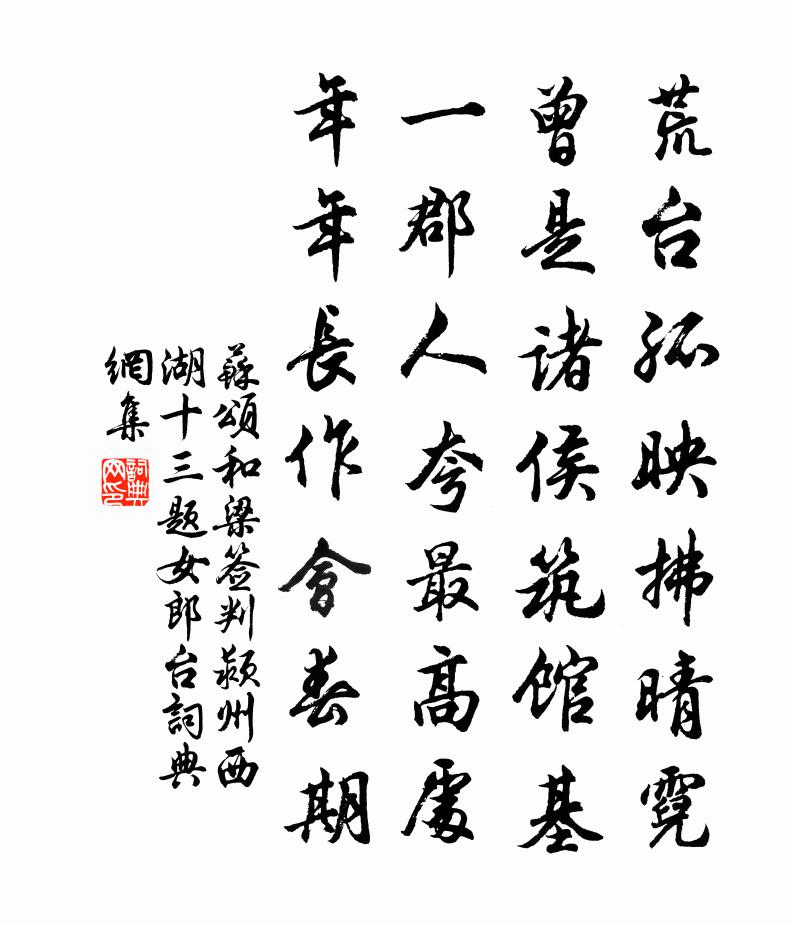 荒台孤映拂晴霓
曾是诸侯筑馆基
一郡人夸最高處
年年長作會春期
蘇頌和梁签判颍州西
湖十三题女郎台詞典
網集
詞典網印